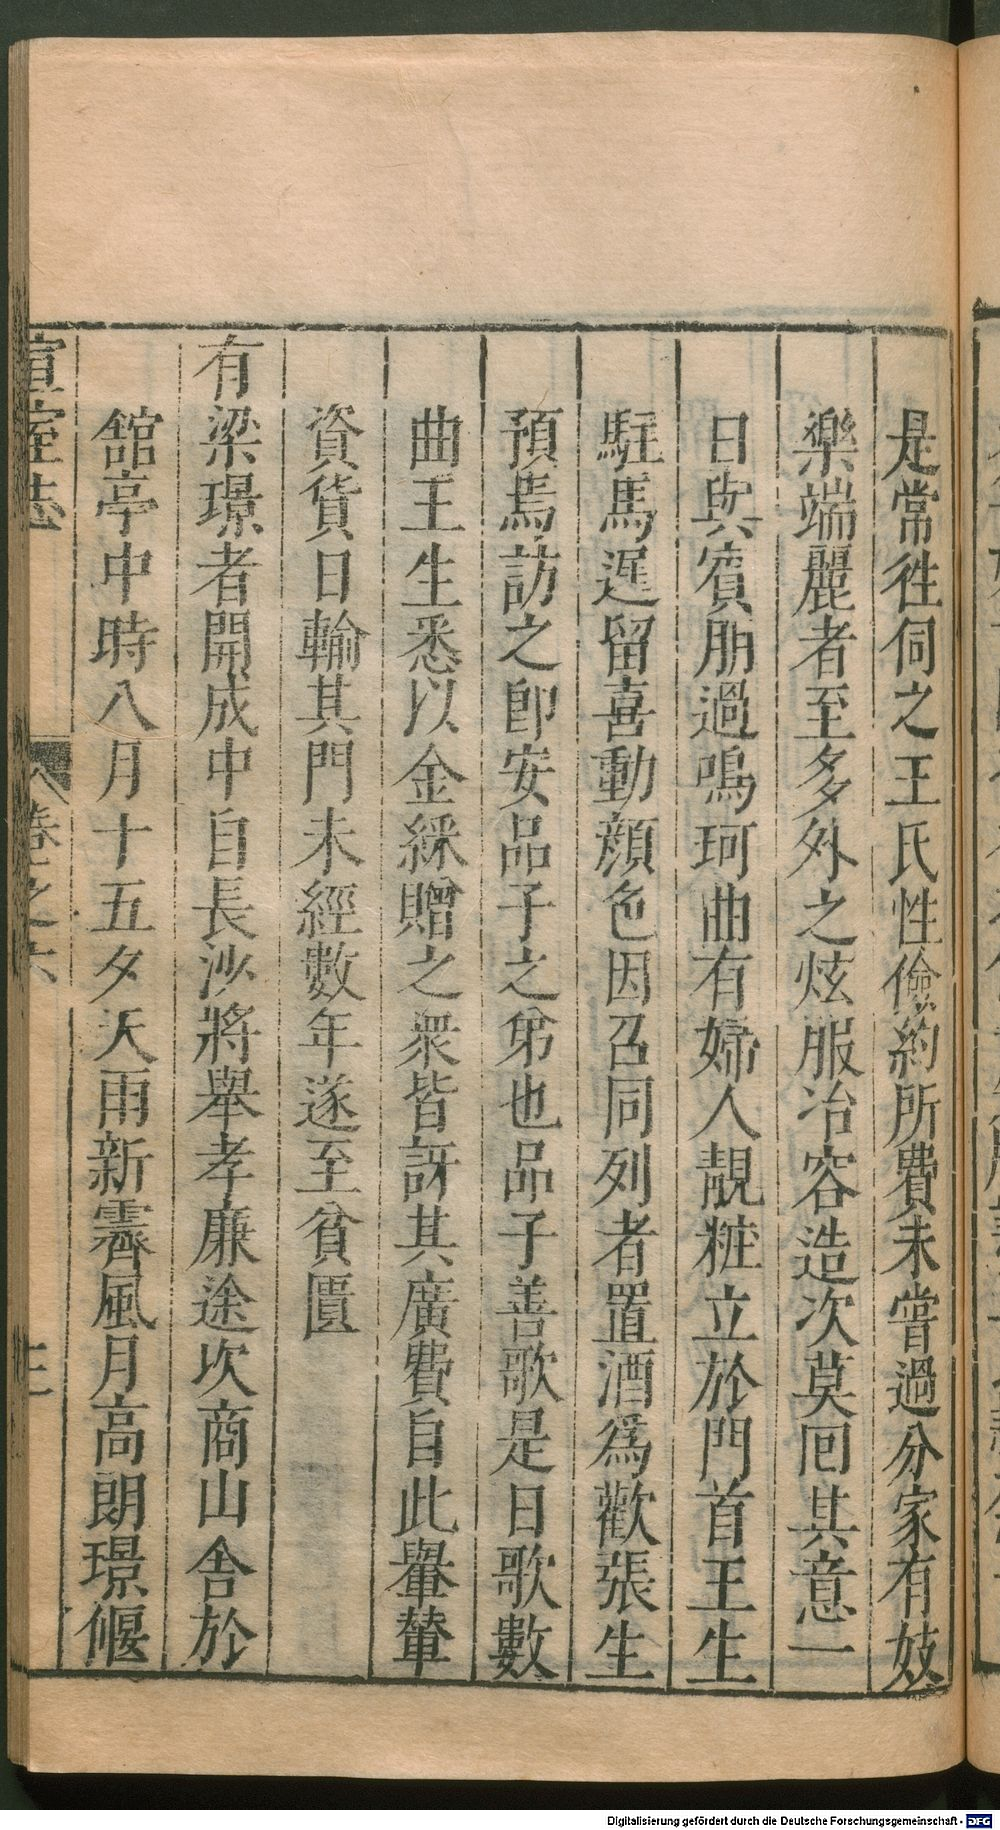 是常徃伺之王氏性儉約所費未嘗過分家有妓
樂端麗者至多外之炫服冶容造次莫囘其意一
日與賓朋過鳴珂曲有婦人靚粧立於門首王生
駐馬遲留喜動顏色因召同列者置酒爲歡張生
預焉訪之卽安品子之弟也品子善歌是日歌數
曲王生悉以金綵贈之衆皆訝其廣費自此轝輦
資貨日輸其門未經數年遂至貧匱
有梁璟者開成中自長沙將舉孝廉途次商山舍於
舘亭中時八月十五夕天雨新霽風月高朗璟偃
宣室志 卷之六 三
Digitalisierung gefördert durch die Deutsche Forschungsgemeinschaft - DFG